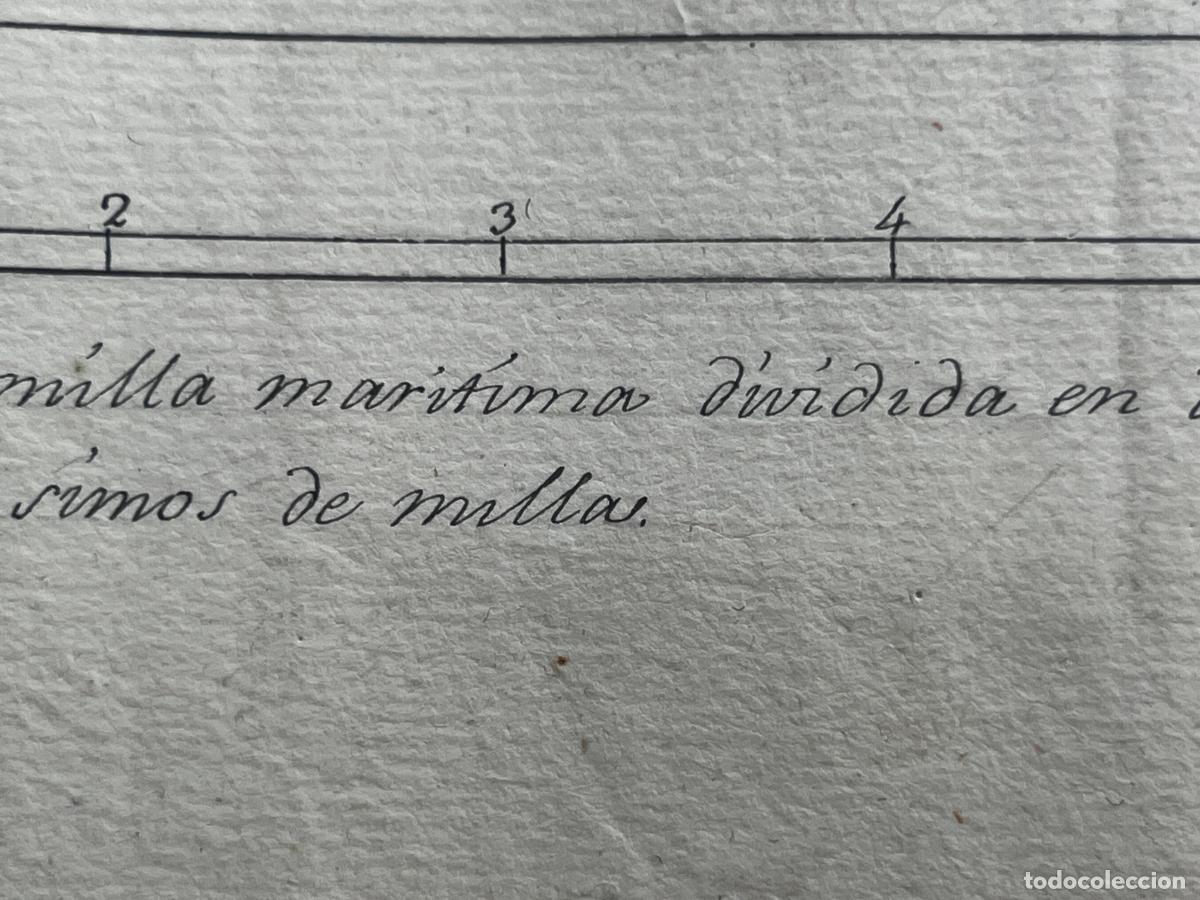 2 3 4
milla maritima dividida en
simos de milla.
todocoleccion